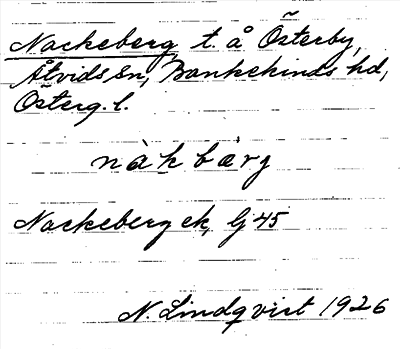 Nackeberg t. å Österby,
Åtvids sn, Bankekinds hd,
Österg. l.
nàkbærg
Nackeberg ek, Gj 45
N. Lindqvist 1926